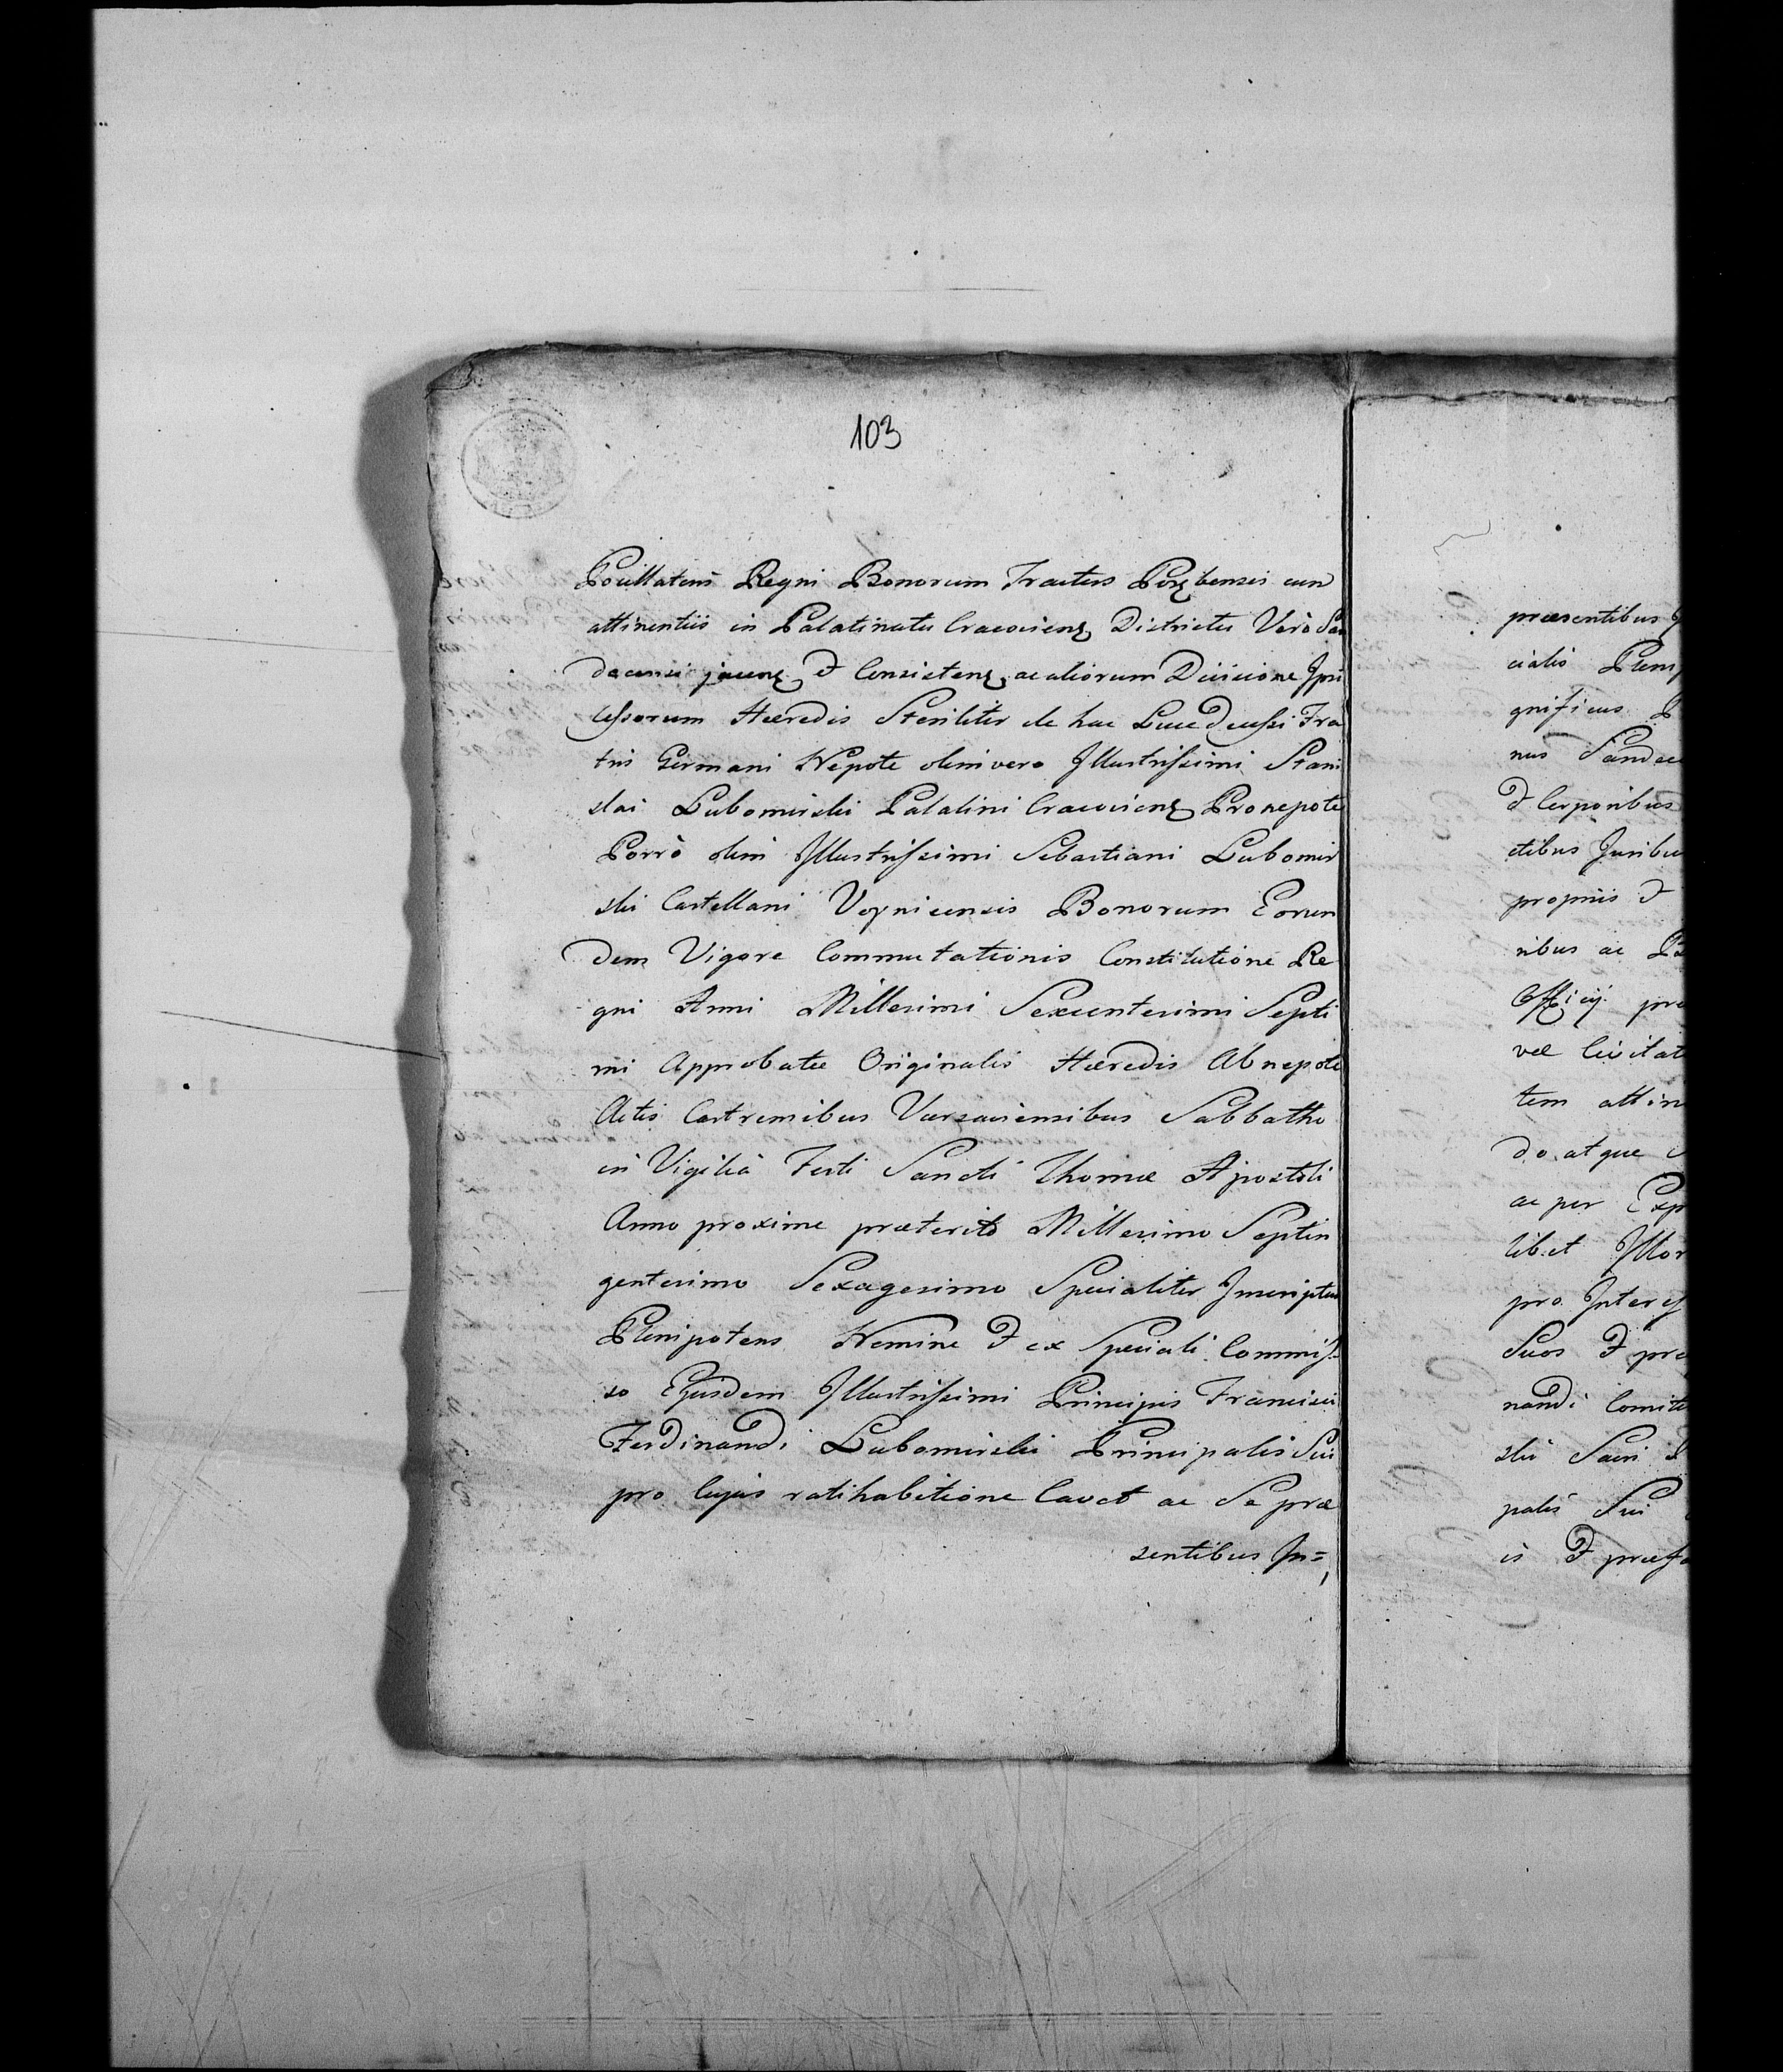 103
Pocillatoris Regni Bonorum Tractus Porębensis cum
attinentiis in Palatinatu Cracovienę Districtu Verò San
decensi jacenę et Consistenę ac aliorum Divisione Ipsi
cessorum Hæredis Steriliter de hac Luce Decessi Fra
tris Germani Nepote olim vero Illustrissimi Stani
slai Lubomirski Palatini Cracovienę Pronepote
Porrò olim Illustrissimi Sebastiani Lubomir
ski Castellani Voynicensis Bonorum Eorun
dem Vigore Commutationis Constitutione Re
gni Anni Millesimi Sexcentesimi Septi
mi Approbatæ Originalis Hæredis Abnepote
Actis Castrensibus Varsaviensibus Sabbatho
in Vigiliâ Festi Sancti Thomæ Apostoli
Anno proxime præterito Millesimo Septin
gentesimo Sexagesimo Specialiter Inscriptus
Plenipotens Nomine et ex Speciali Commis=
so Ejusdem Illustrissimi Principis Francisci
Ferdinandi Lubomirski Principalis Sui
pro Cujus ratihabitione Cavet ac Se præ
sentibus In=
præsentibus
cialis Plenip
gnificus
nus Sandec
et Corporibus
ctibus Juribu
propriis et
ribus ac
Officij præ
vel Civitat
tem attin
do atque
ac per Exp
libet Illor
pro Interess
Suos et præ
nandi Comit
ski Sacri
palis Sui
is et præfa